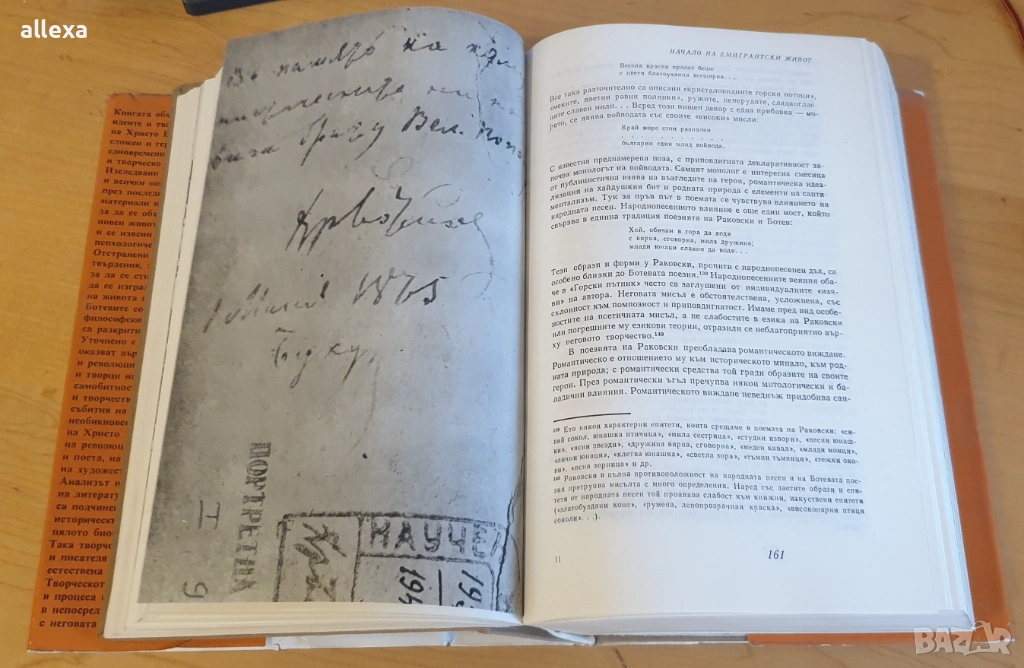 allexa
Книгата об
на Христо Б
сложен и ге
едновременн
и творческо
Изследванет
и всички ни
през последн
материали и
за да се об
новен живот
и се изясни
психологиче
Отстранени
твърдения,
за да се сти
за да се изгра
на живота и
Ботевите со
философски
са разкрити
Уточнено е
оказват вър
и революци
и творци н
самобитност
и творчеств
събития на
необикновен
на Христо
на революц
и поета, на
на художест
Анализът н
на литерату
са подчинен
историческ
цялото био
Така творче
и писателя
естествена
Творческот
и процеса н
в непосред
с неговата
въ памѧть на
Вел. Попо
1875
ПОРТРЕТНА
I
9
НАУЧЕ
194
НАЧАЛО НА ЕМИГРАНТСКИ ЖИВОТ
Весела красна пролет беше
с цветя благоуханна всешарка. . .
Все така разточително са описани «кристаловидните горски потоци»,
«меките, цветни равни полянки», ружите, пеперудите, сладкоглас-
ните славеи мили. . . Всред този пищен декор с една прибавка — мо-
рето, се явява войводата със своите «високи» мисли:
Край море стои разпален
. . . . . . . . . .
българин един млад войвода.
С известна преднамерена поза, с приповдигната декларативност за-
почва монологът на войводата. Самият монолог е интересна смесица
от публицистична изява на възгледите на героя, романтическа идеа-
лизация на хайдушкия бит и родната природа с елементи на санти-
ментализъм. Тук за пръв път в поемата се чувствува влиянието на
народната песен. Народнопесенното влияние е още един мост, който
свързва в единна традиция поезията на Раковски и Ботев:
Хой, обичен в гора да ходи
с вярна, сговорна, мила дружина;
млади юнаци славно да води. . .
Тези образи и форми у Раковски, пропити с народнопесенен дъх, са
особено близки до Ботевата поезия.¹³⁹ Народнопесенните веяния оба-
че в «Горски пътник» често са заглушени от индивидуалните «изя-
ви» на автора. Неговата мисъл е обстоятелствена, усложнена, със
склонност към помпозност и приповдигнатост. Имаме пред вид особе-
ностите на поетичната мисъл, а не слабостите в езика на Раковски
или погрешните му езикови теории, отразили се неблагоприятно вър-
ху неговото творчество.¹⁴⁰
В поезията на Раковски преобладава романтическото виждане.
Романтическо е отношението му към историческото минало, към род-
ната природа; с романтически средства той гради образите на своите
герои. През романтически ъгъл пречупва някои митологически и ба-
ладични влияния. Романтическото виждане неведнъж придобива сан-
¹³⁹ Ето някои характерни епитети, които срещаме в поемата на Раковски: «си-
вий сокол, юнашка птичина», «мила сестрица», «студни извори», «песни юнаш-
ки», «ясни звезди», «дружина вярна, сговорна», «меден кавал», «млади момци»,
«лични юнаци», «клетва юнашка», «светла зора», «тъмни тъмници», «тежки око-
ви», «ясна зорница» и др.
¹⁴⁰ Раковски в пълна противоположност на народната песен и на Ботевата пое-
зия претрупва мисълта с много определения. Наред със заетите образи и епи-
тети от народната песен той проявява слабост към книжни, изкуствени епитети
(«златобуздани коне», «румена, лепопрозрачная краска», «високопарни птици
соколи». . .).
11
161
BAZAR.bg